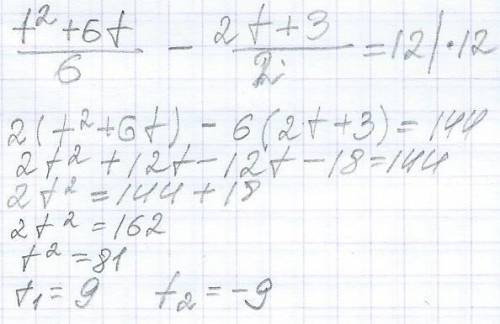 t² + 6t / 6 - 2t + 3 / 2 = 12 | · 12
2(t² + 6t) - 6(2t + 3) = 144
2t² + 12t - 12t - 18 = 144
2t² = 144 + 18
2t² = 162
t² = 81
t₁ = 9 t₂ = -9